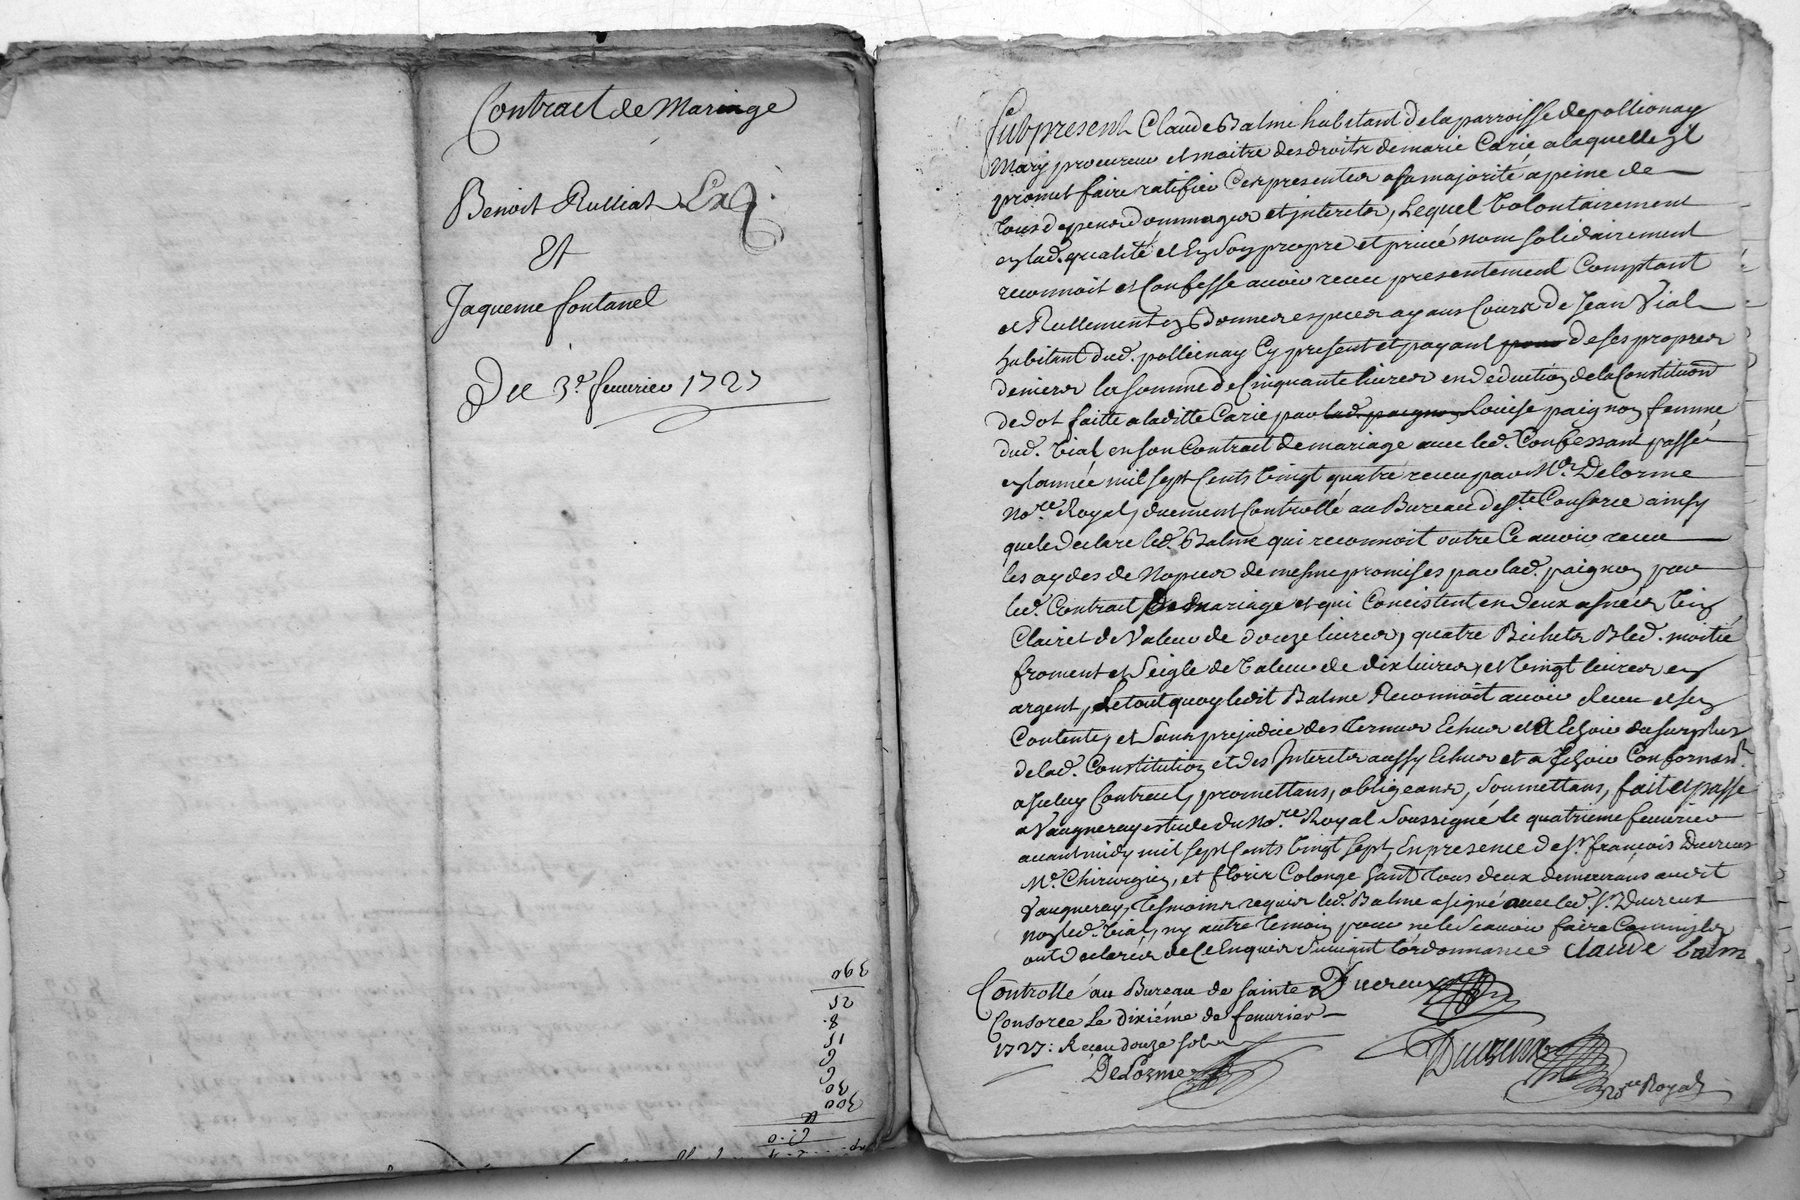 Contract de Mariage
Benoist Rulliat
Et
Jaqueme fontanel
Du 3.e feuurier 1727
390
52
8.
15
6
6
30
300
fut present Claude Balme habitant de la parroisse de pollionay
Mary procureur et maitre des droits de marie Carie a laquelle jl
promet faire ratifier Ces presentes a sa majorité a peine de
tous depens dommages et jnterets, Lequel Volontairement
en lad. qualité et En Son propre et priué nom solidairement
reconnoit et Confesse auoir receu presentement Comptant
et Rellement en bonnes especes ayans Cours de Jean Vial
habitant dud. pollionay Cy present et payant pour de ses propres
deniers la somme de Cinquante liures en deduction de la Constituon
de dot faitte a laditte Carie par lad. paignon Louise paignon femme
dud. Vial en son Contract de mariage auec led. Confessant passé
en l'année mil sept Cents Vingt quatre receu par Me. Delorme
No.re Royal, duement Controllé au Bureau de S.te Consorce ainsy
que le declare led. Balme qui reconnoit outre Ce auoir receu
les aydes de Nopces de mesme promises par lad. paignon par
led. Contract de mariage et qui Concistent en deux asnées Vin
Clairet de Valeur de douze liures, quatre Bichets Bled. moitié
froment et Seigle de Valeur de dix liures, et Vingt liures en
argent, de tout quoy ledit Balme Reconnoit auoir Receu et s'en
Contente, et Sans prejudice des termes Echus et a Echoir du surplus
de lad. Constitution et des Interets aussy Echus et a Echoir Conformem.t
a Jceluy Contract, promettans, obligeans, Soumettans, fait et passé
a Vaugneray estude du No.re Royal Soussigné le quatrieme feurier
auant midy mil sept Cents Vingt Sept, En presence de S.r françois Ducreux
M.e Chirurgien, et floris Colonge tous deux demeurans audit
Vaugneray, Tesmoins requis led. Balme a signé auec led. S.r Ducreux
non led. Vial, ny autre temoin pour ne le Scauoir faire
ont declarés de Ce Enquis Suiuant l'ordonnance claude balm
Controllé au Bureau de Sainte Ducreux
Consorce Le dixiéme de feuurier
1727: Receu douze sols
DeLorme
Ducreux
No.re Royal